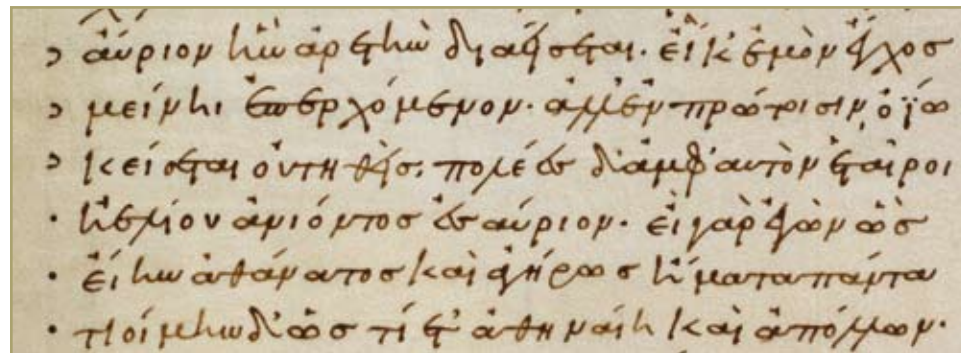 Ͻ αὔριον ἣν ἀρετὴν διαείσεται· εἴ κ' ἐμὸν ἔγχος
Ͻ μείνηι ἐπερχόμενον· ἀλλ' ἐν πρώτοισιν, ὀΐω
Ͻ κείσεται οὐτηθείς· πολέες δ' ἀμφ' αὐτὸν ἑταῖροι
· ἠελίου ἀνιόντος ἐς αὔριον· εἰ γὰρ ἐγὼν ὣς
· εἴην ἀθάνατος καὶ ἀγήρως ἤματα πάντα
· τιοίμην δ' ὡς τίετ' ἀθηναίη καὶ ἀπόλλων·